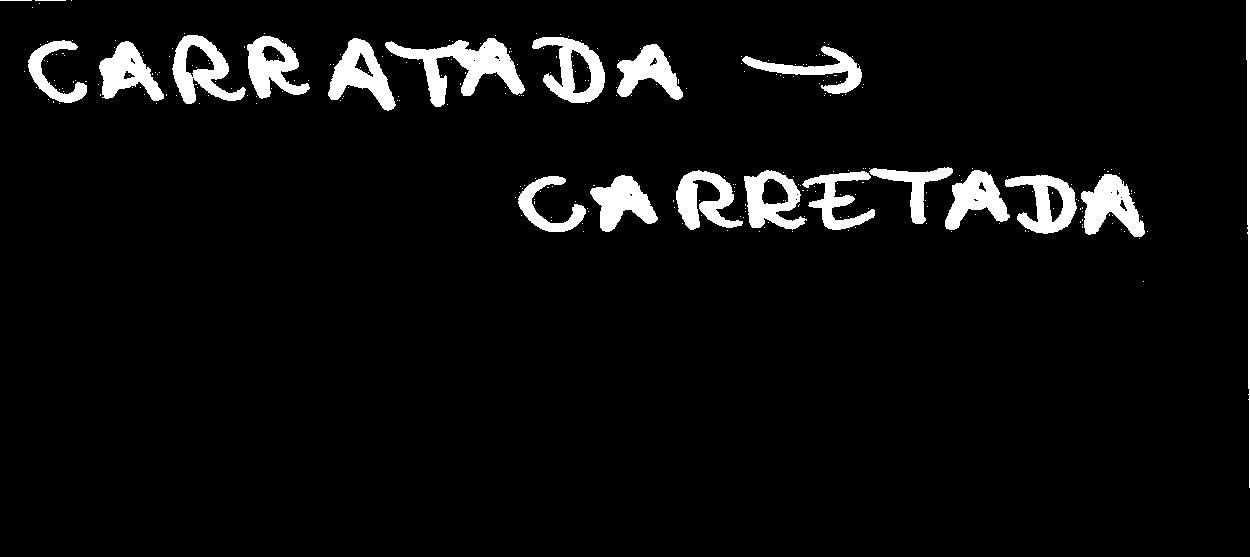 CARRATADA →
CARRETADA